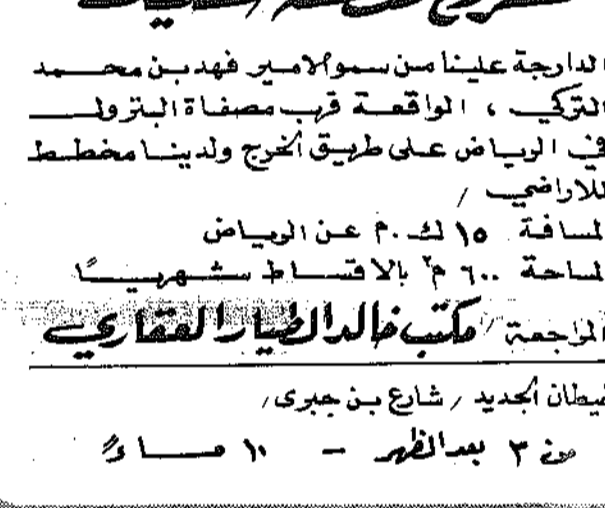 الدارجة علينا من سمو الامير فهد بن محمد
التركي ، الواقعة قرب مصفاة البترول
في الرياض على طريق الخرج ولدينا مخطط
للاراضي /
لمسافة ١٥ ك.م عن الرياض
لمساحة ٦٠٠ م٢ بالاقساط شهريــًا
المراجعة / مكتب خالد الطيار العقاري
خيطان الجديد / شارع بن جبرى /
من ٣ بعد الظهر - ١٠ مساءً